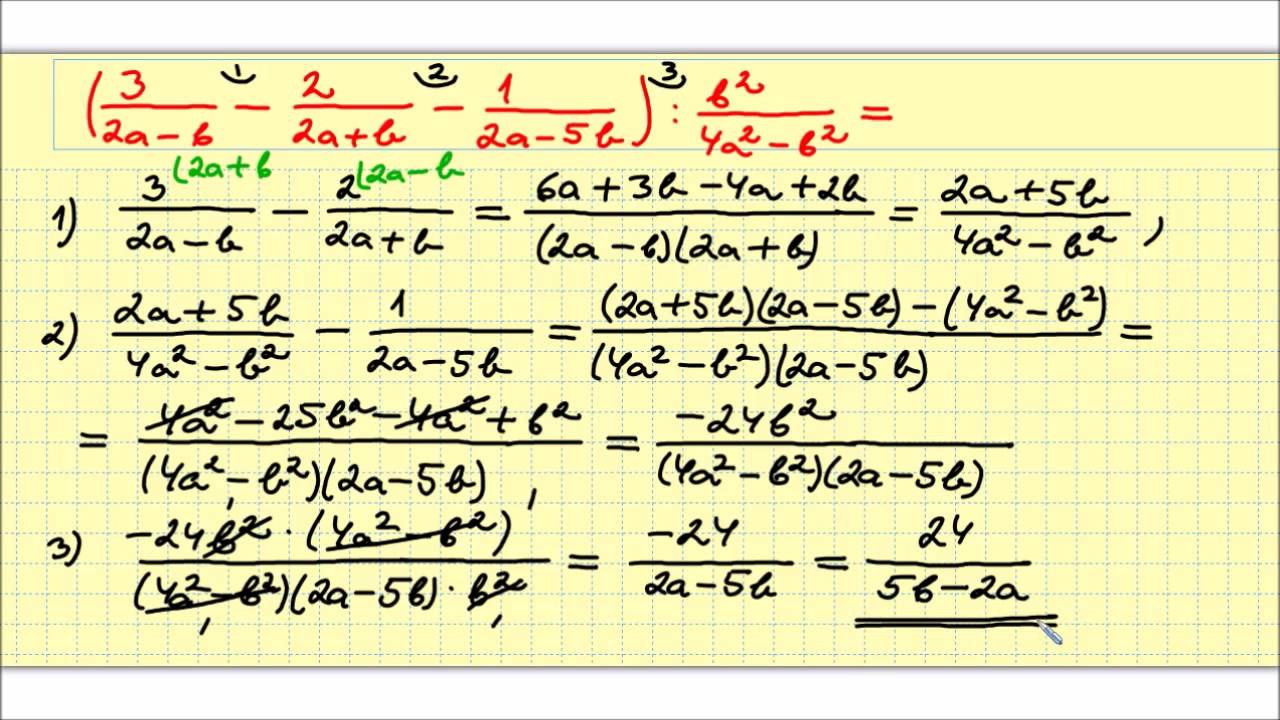 (3/(2a-b) - 2/(2a+b) - 1/(2a-5b)) : b²/(4a²-b²) =
1 2 3
1) 3/(2a-b) - 2/(2a+b) = (6a+3b-4a+2b)/((2a-b)(2a+b)) = (2a+5b)/(4a²-b²),
(2a+b (2a-b
2) (2a+5b)/(4a²-b²) - 1/(2a-5b) = ((2a+5b)(2a-5b)-(4a²-b²))/((4a²-b²)(2a-5b)) =
= (4a²-25b²-4a²+b²)/((4a²-b²)(2a-5b)) = -24b²/((4a²-b²)(2a-5b)),
3) (-24b²·(4a²-b²))/((4a²-b²)(2a-5b)·b²) = -24/(2a-5b) = 24/(5b-2a)